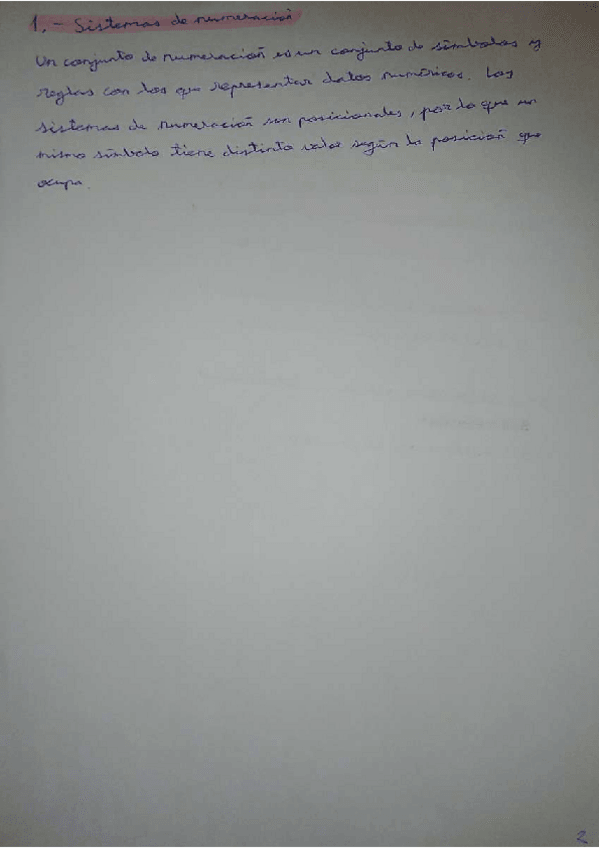 1.- Sistemas de numeración
Un conjunto de numeración es un conjunto de símbolos y
reglas con los que representar datos numéricos. Los
sistemas de numeración son posicionales, por lo que un
mismo símbolo tiene distinto valor según la posición que
ocupa.
2